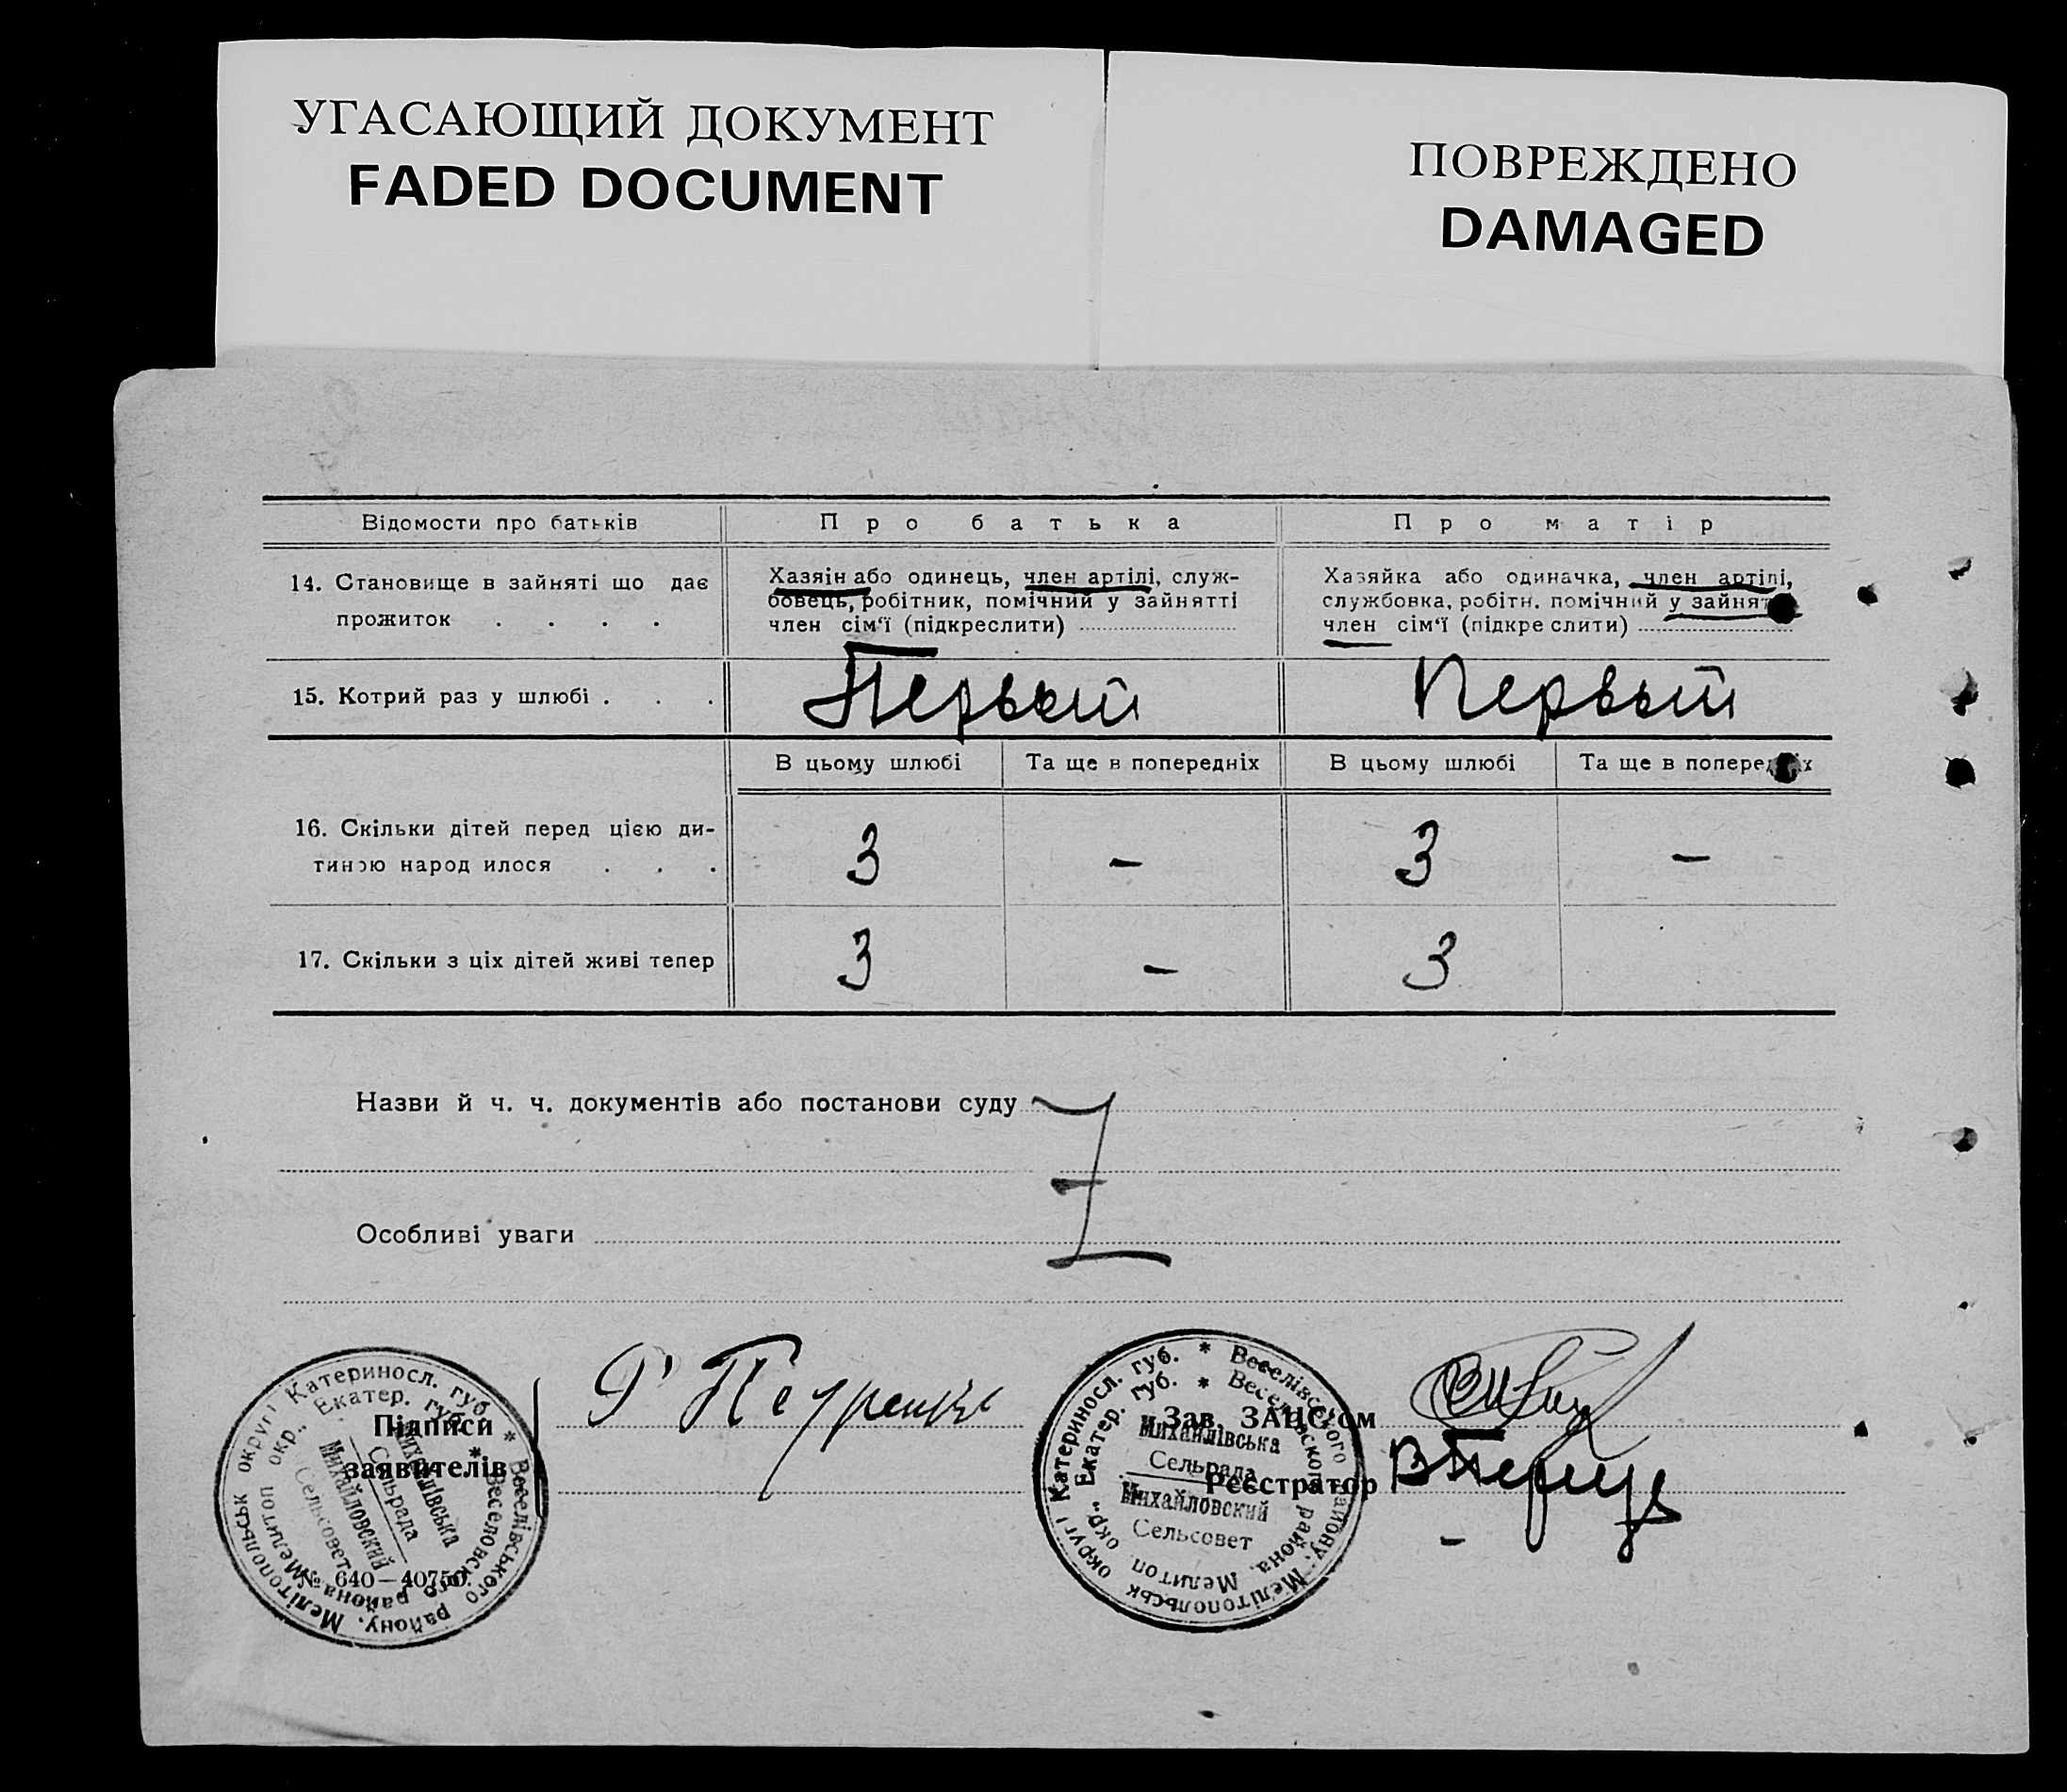 УГАСАЮЩИЙ ДОКУМЕНТ
FADED DOCUMENT
ПОВРЕЖДЕНО
DAMAGED
Відомости про батьків
Про батька
Про матір
14. Становище в зайняті що дає
прожиток . . . .
Хазяін або одинець, член артілі, служ-
бовець, робітник, помічний у зайнятті
член сім'ї (підкреслити)
Хазяйка або одиначка, член артілі,
службовка, робітн. помічний у зайнят
член сім'ї (підкреслити)
15. Котрий раз у шлюбі . . .
Первый
Первый
В цьому шлюбі
Та ще в попередніх
В цьому шлюбі
Та ще в попередніх
16. Скільки дітей перед цією ди-
тиною народилося . . .
3
–
3
–
17. Скільки з ціх дітей живі тепер
3
–
3
Назви й ч. ч. документів або постанови суду
Особливі уваги
Підписи
заявителів
Зав. ЗАЦС'ом
Реєстратор
№ 640—40750.
Катериносл. губ. * Веселівського району, Мелітопольськ округі
Екатер. губ. * Веселовского района, Мелитоп окр.,
Михайлівська
Сельрада
Михайловский
Сельсовет
Катериносл. губ. * Веселівського району, Мелітопольськ округі
Екатер. губ. * Веселовского района, Мелитоп окр.,
Михайлівська
Сельрада
Михайловский
Сельсовет